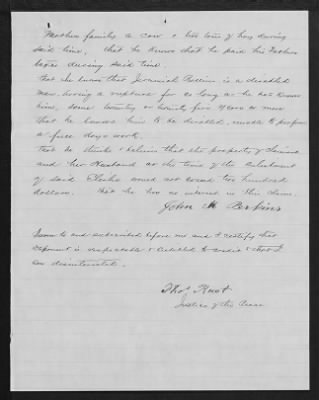 Mothers families a cow & two tons of hay during
said time, that he knows that he paid his Fathers
taxes during said time.
That he knows that Jeremiah Rollins is a disabled
man, having a rupture for as long as he has known
him, some twenty or twenty five years or more
that he knows him to be disabled, unable to perform
a full days work.
That he thinks & believes that the property of
and her Husband at the time of the Enlistment
of said would not exceed two hundred
dollars. That he has no interest in this claim.
John M. Perkins
Sworn to and subscribed before me and I certify that
deponent is respectable & entitled to credit & that I
am disinterested.
Thos Rust
Justice of the Peace